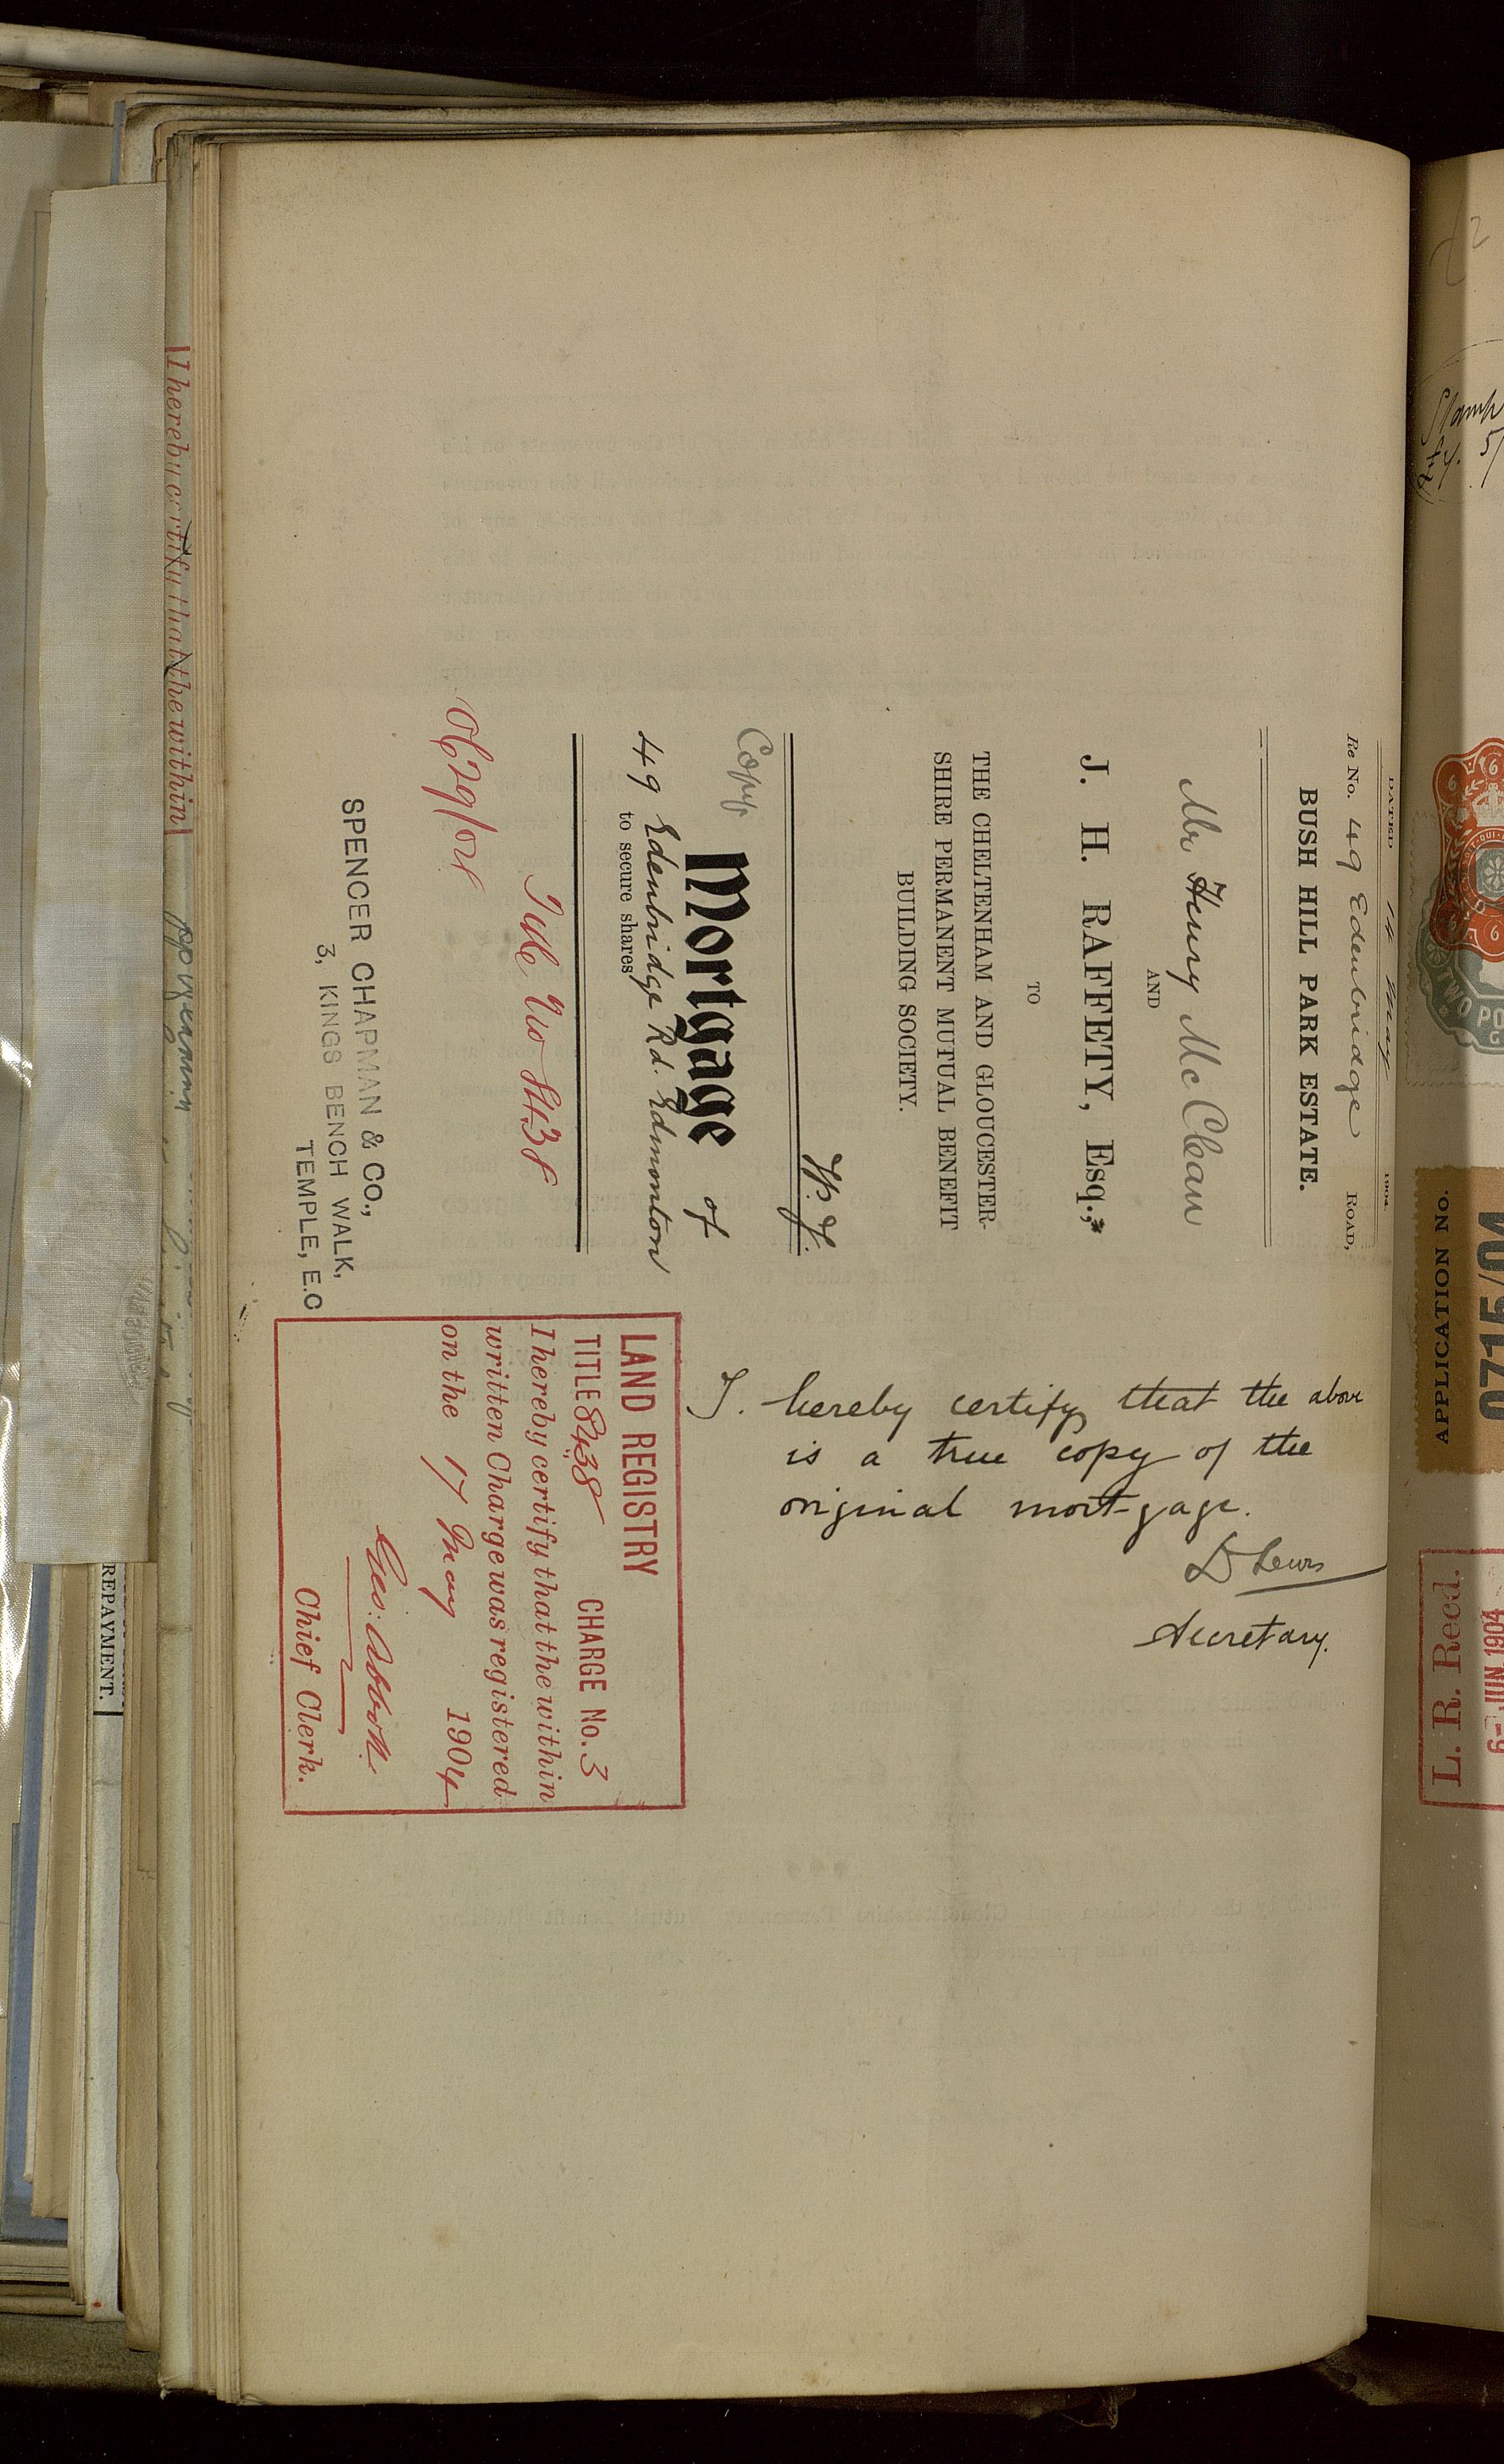 DATED 14 May 1904.
Re No. 49 Edenbridge ROAD,
BUSH HILL PARK ESTATE.
Mr Henry McClean
AND
J. H. RAFFETY, Esq.,
TO
THE CHELTENHAM AND GLOUCESTER-
SHIRE PERMANENT MUTUAL BENEFIT
BUILDING SOCIETY.
Copy
Mortgage of
49 Edenbridge Rd. Edmonton
to secure shares
Title No 8438
SPENCER CHAPMAN & CO.,
3, KINGS BENCH WALK,
TEMPLE, E.C
I hereby certify that the above
is a true copy of the
original mortgage.
D Lewis
Secretary.
LAND REGISTRY
TITLE 8438 CHARGE No. 3
I hereby certify that the within
written Charge was registered
on the 17 May 1904
Geo: Abbott
Chief Clerk.
I hereby certify that the within
REPAYMENT.
Stamp
TWO PO
APPLICATION NO.
L. R. Recd.
9-JUN 1904